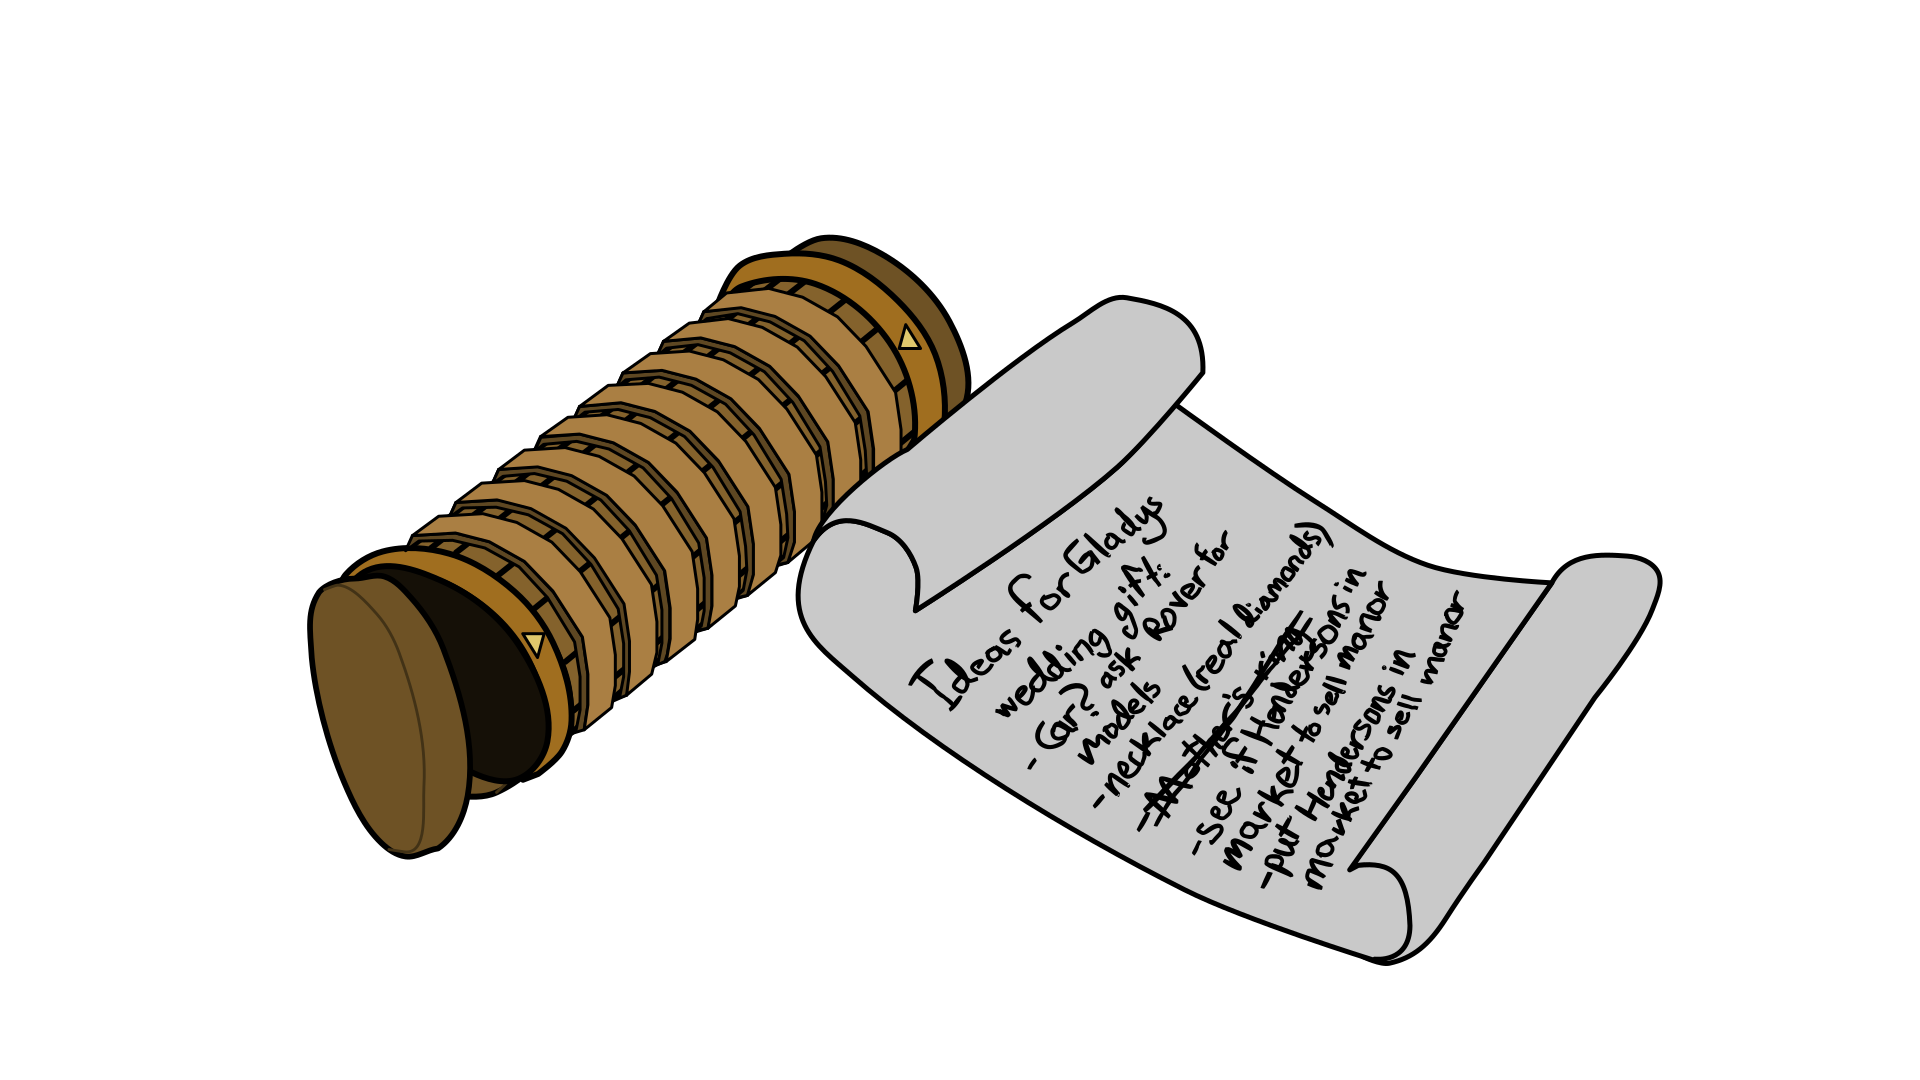 Ideas for Gladys
wedding gift:
- Car? ask Rover for
models
- necklace (real diamonds)
- Mother's ring
- see if Hendersons in
market to sell manor
- put Hendersons in
market to sell manor